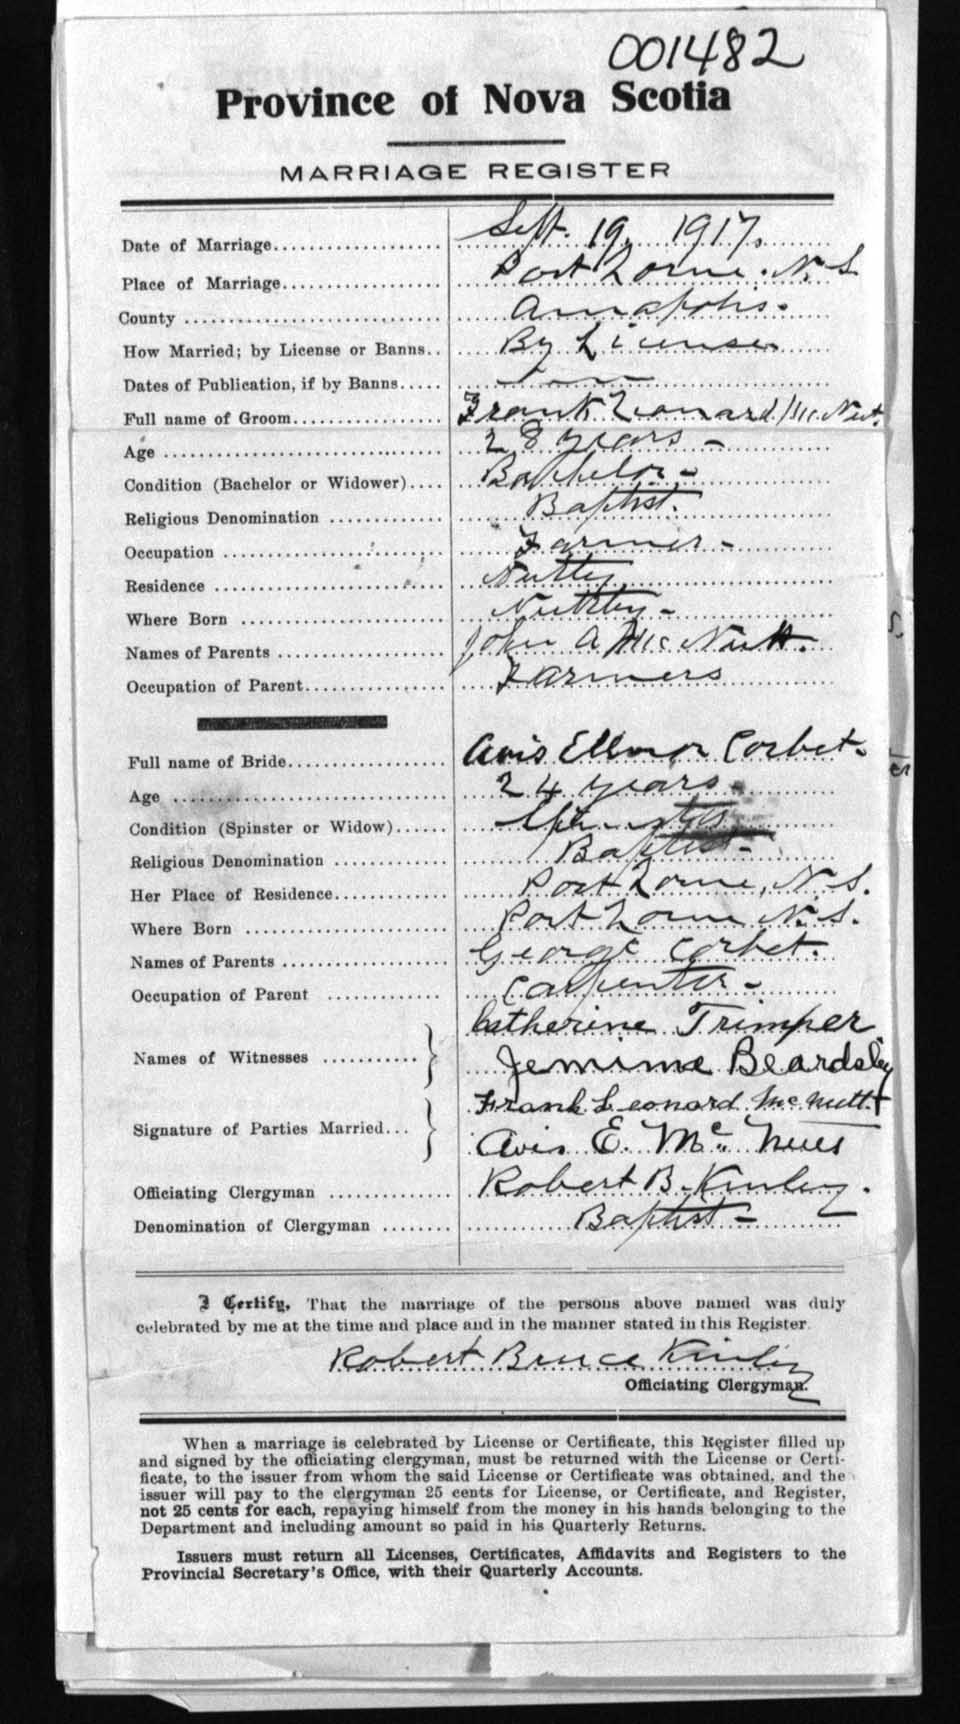 001482
Province of Nova Scotia
MARRIAGE REGISTER
Date of Marriage.................... Sept. 19, 1917.
Place of Marriage................... Port Lorne. N.S
County ............................. Annapolis.
How Married; by License or Banns.. By License
Dates of Publication, if by Banns.....
Full name of Groom................. Frank Leonard McNutt.
Age ................................ 28 years -
Condition (Bachelor or Widower).... Bachelor -
Religious Denomination .............. Baptist.
Occupation ......................... Farmer -
Residence ..........................
Where Born .........................
Names of Parents .................... John A McNutt.
Occupation of Parent................. Farmers
Full name of Bride.................. Avis Ellnor Corbet.
Age ................................ 24 years -
Condition (Spinster or Widow)...... Spinster
Religious Denomination ............. Baptist -
Her Place of Residence.............. Port Lorne, N.S.
Where Born ......................... Port Lorne N.S.
Names of Parents .................... George Corbet.
Occupation of Parent ............... Carpenter -
Catherine Trimper
Names of Witnesses ...........}
Jemima Beardsley
Frank Leonard McNutt
Signature of Parties Married...}
Avis E. Mc
Officiating Clergyman .............. Robert B. Kinley.
Denomination of Clergyman ........ Baptist -
I Certify, That the marriage of the persons above named was duly
celebrated by me at the time and place and in the manner stated in this Register.
Robert Bruce Kinley
Officiating Clergyman.
When a marriage is celebrated by License or Certificate, this Register filled up
and signed by the officiating clergyman, must be returned with the License or Certi-
ficate, to the issuer from whom the said License or Certificate was obtained, and the
issuer will pay to the clergyman 25 cents for License, or Certificate, and Register,
not 25 cents for each, repaying himself from the money in his hands belonging to the
Department and including amount so paid in his Quarterly Returns.
Issuers must return all Licenses, Certificates, Affidavits and Registers to the
Provincial Secretary's Office, with their Quarterly Accounts.